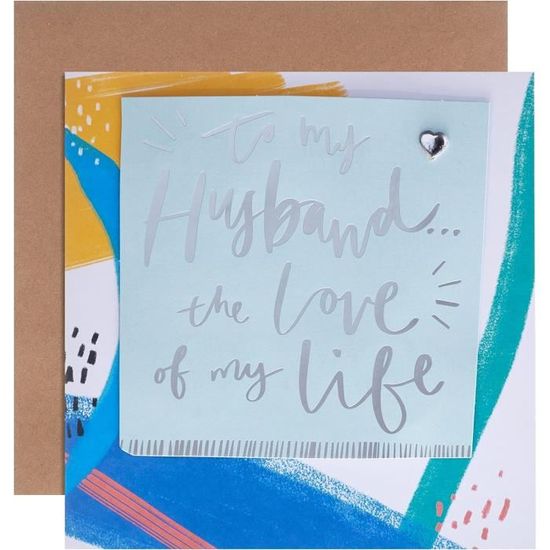 to my
Husband...
the love
of my life